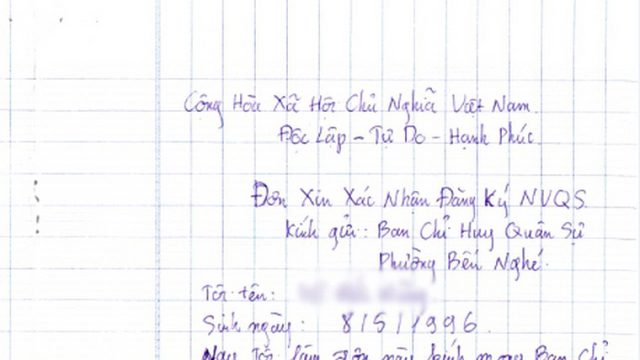 Cộng Hòa Xã Hội Chủ Nghĩa Việt Nam
Độc Lập - Tự Do - Hạnh Phúc
Đơn Xin Xác Nhận Đăng Ký NVQS
Kính gửi: Ban Chỉ Huy Quân Sự
Phường Bến Nghé.
Tôi tên:
Sinh ngày: 8/5/1996.
Nay Tôi làm đơn này kính mong Ban Chỉ